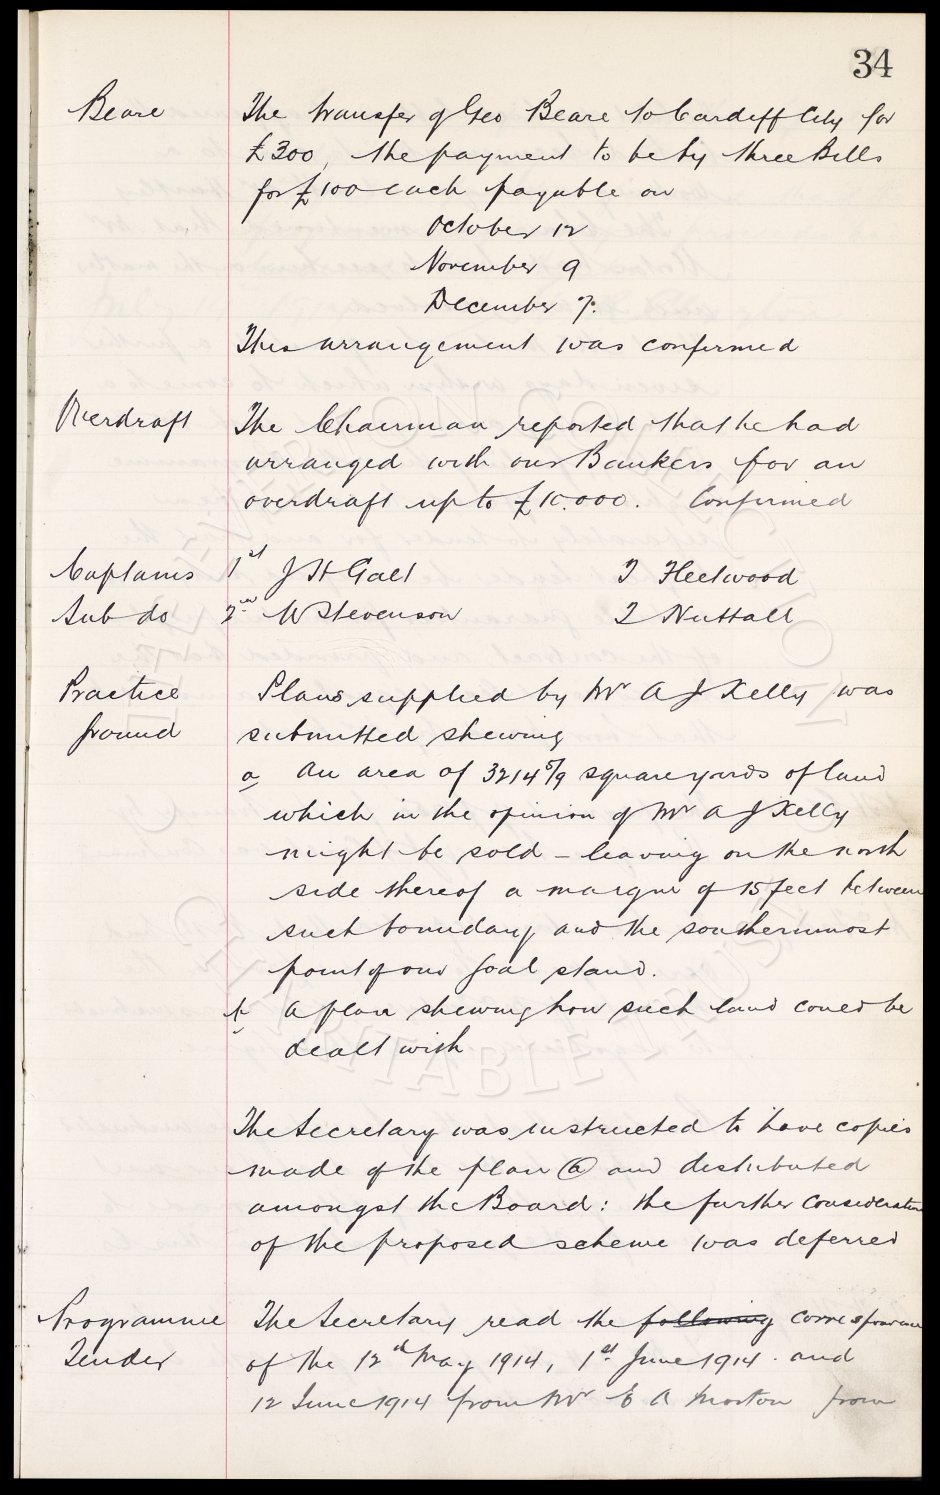 34
Beare
The transfer of Geo Beare to Cardiff City for
£300, the payment to be by three Bills
for £100 each payable on
October 12
November 9
December 7.
This arrangement was confirmed
Overdraft
The Chairman reported that he had
arranged with our Bankers for an
overdraft up to £10.000. Confirmed
Captains 1st J H Galt T Fleetwood
Sub do 2nd W Stevenson T Nuttall
Practice
Ground
Plans supplied by Mr A J Kelly was
submitted shewing
a An area of 3214 5/9 square yards of land
which in the opinion of Mr A J Kelly
might be sold - leaving on the north
side thereof a margin of 15 feet between
such boundary and the southernmost
point of our Goal stand.
b A plan shewing how such land could be
dealt with
The Secretary was instructed to have copies
made of the plan (a) and distributed
amongst the Board: the further consideration
of the proposed scheme was deferred
Programme
Tender
The Secretary read the following correspondence
of the 12th May 1914, 1st June 1914 and
12 June 1914 from Mr E A Morton from